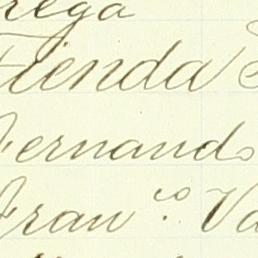 rega
Tienda
Fernando
Fran.co Va